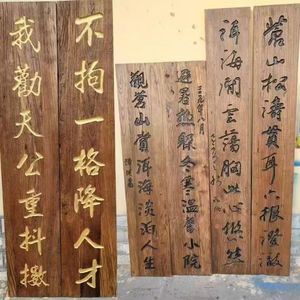 我勸天公重抖擻
不拘一格降人才
蒼山松濤貫耳六根澄澈
洱海閒雲蕩胸此心悠然
避暑熱躲冬寒溫馨小院
觀蒼山賞洱海淡泊人生